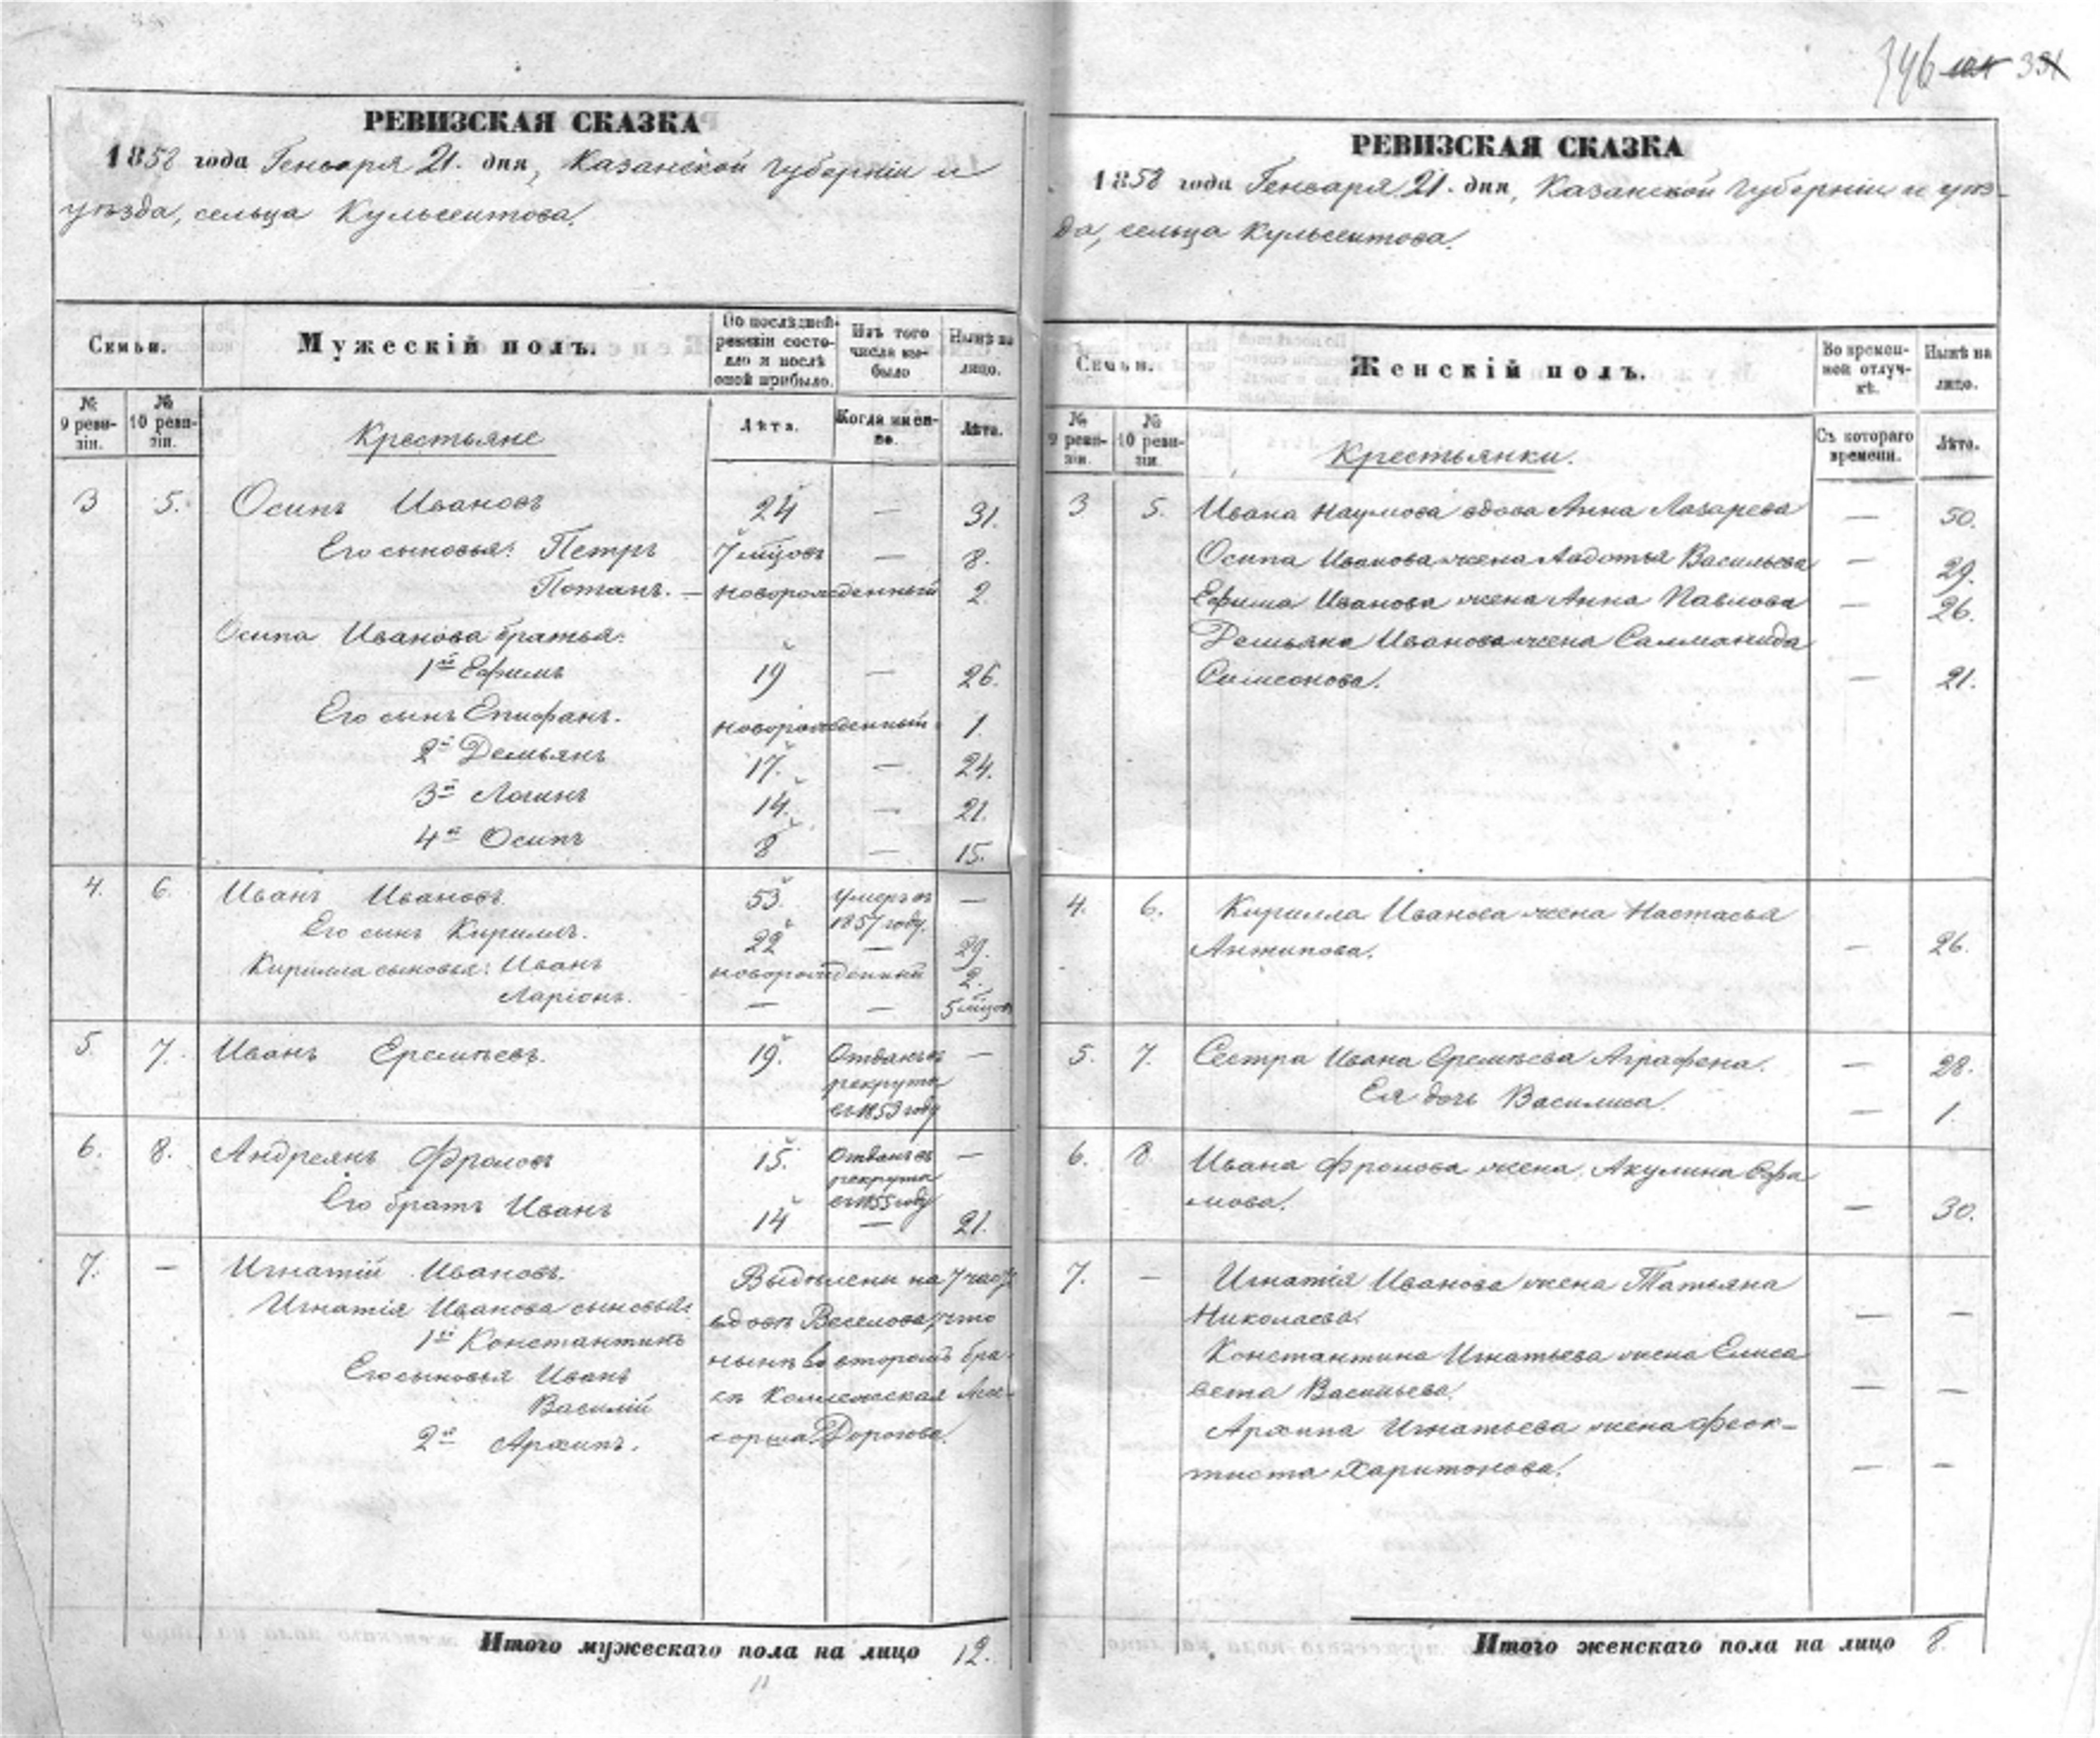 346 331
РЕВИЗСКАЯ СКАЗКА
1858 года Генваря 21. дня, Казанской губерніи и
уѣзда, сельца Кульсеитова.
Семьи.
Мужескій полъ.
По послѣдней
ревизіи состо-
яло и послѣ
оной прибыло.
Изъ того
числа вы-
было
Нынѣ на
лицо.
№
9 реви-
зіи.
№
10 реви-
зіи.
Крестьяне
Лѣта.
Когда имен-
но.
Лѣта.
3 5. Осипъ Ивановъ 24 — 31.
Его сыновья: Петръ 7 мѣцовъ — 8.
Потапъ. — новорожденный 2.
Осипа Иванова братья:
1й Ефимъ 19 — 26.
Его сынъ Епифанъ. новорожденный. 1.
2й Демьянъ 17. — 24.
3й Логинъ 14. — 21.
4й Осипъ 8 — 15.
4. 6. Иванъ Ивановъ. 53 Умеръ въ —
1857 году.
Его сынъ Кирилъ. 22 — 29.
Кирилла сыновья: Иванъ новорожденный 2.
Ларіонъ. — — 5 мѣцовъ
5. 7. Иванъ Еремѣевъ. 19. Отданъ въ —
рекруты
въ 1853 году
6. 8. Андреянъ Фроловъ 15. Отданъ въ —
рекруты
въ 1855 году
Его братъ Иванъ 14 — 21.
7. — Игнатій Ивановъ. Выдѣлены на 7 часть
Игнатія Иванова сыновья: вдовѣ Веселова, что
1й Константинъ нынѣ во второмъ бра-
Его сыновья Иванъ кѣ Коллежская Ассе-
Василій
2й Архипъ. сорша Дорогова.
Итого мужескаго пола на лицо 12.
РЕВИЗСКАЯ СКАЗКА
1858 года Генваря 21. дня, Казанской губерніи и уѣз-
да, сельца Кульсеитова.
Семьи.
Женскій полъ.
Во времен-
ной отлуч-
кѣ.
Нынѣ на
лицо.
№
9 реви-
зіи.
№
10 реви-
зіи.
Крестьянки.
Съ котораго
времени.
Лѣта.
3 5. Ивана Наумова вдова Анна Лазарева — 50.
Осипа Иванова жена Авдотья Васильева — 29.
Ефима Иванова жена Анна Павлова — 26.
Демьяна Иванова жена Саломонида
Симеонова. — 21.
4. 6. Кирилла Иванова жена Настасья
Антипова. — 26.
5. 7. Сестра Ивана Еремѣева Аграфена. — 28.
Ея дочь Василиса. — 1.
6. 8. Ивана Фролова жена Акулина Ефи
мова. — 30.
7. — Игнатія Иванова жена Татьяна
Николаева. — —
Константина Игнатьева жена Елиса
вета Васильева. — —
Архипа Игнатьева жена Феок-
тиста Харитонова. — —
Итого женскаго пола на лицо 8.